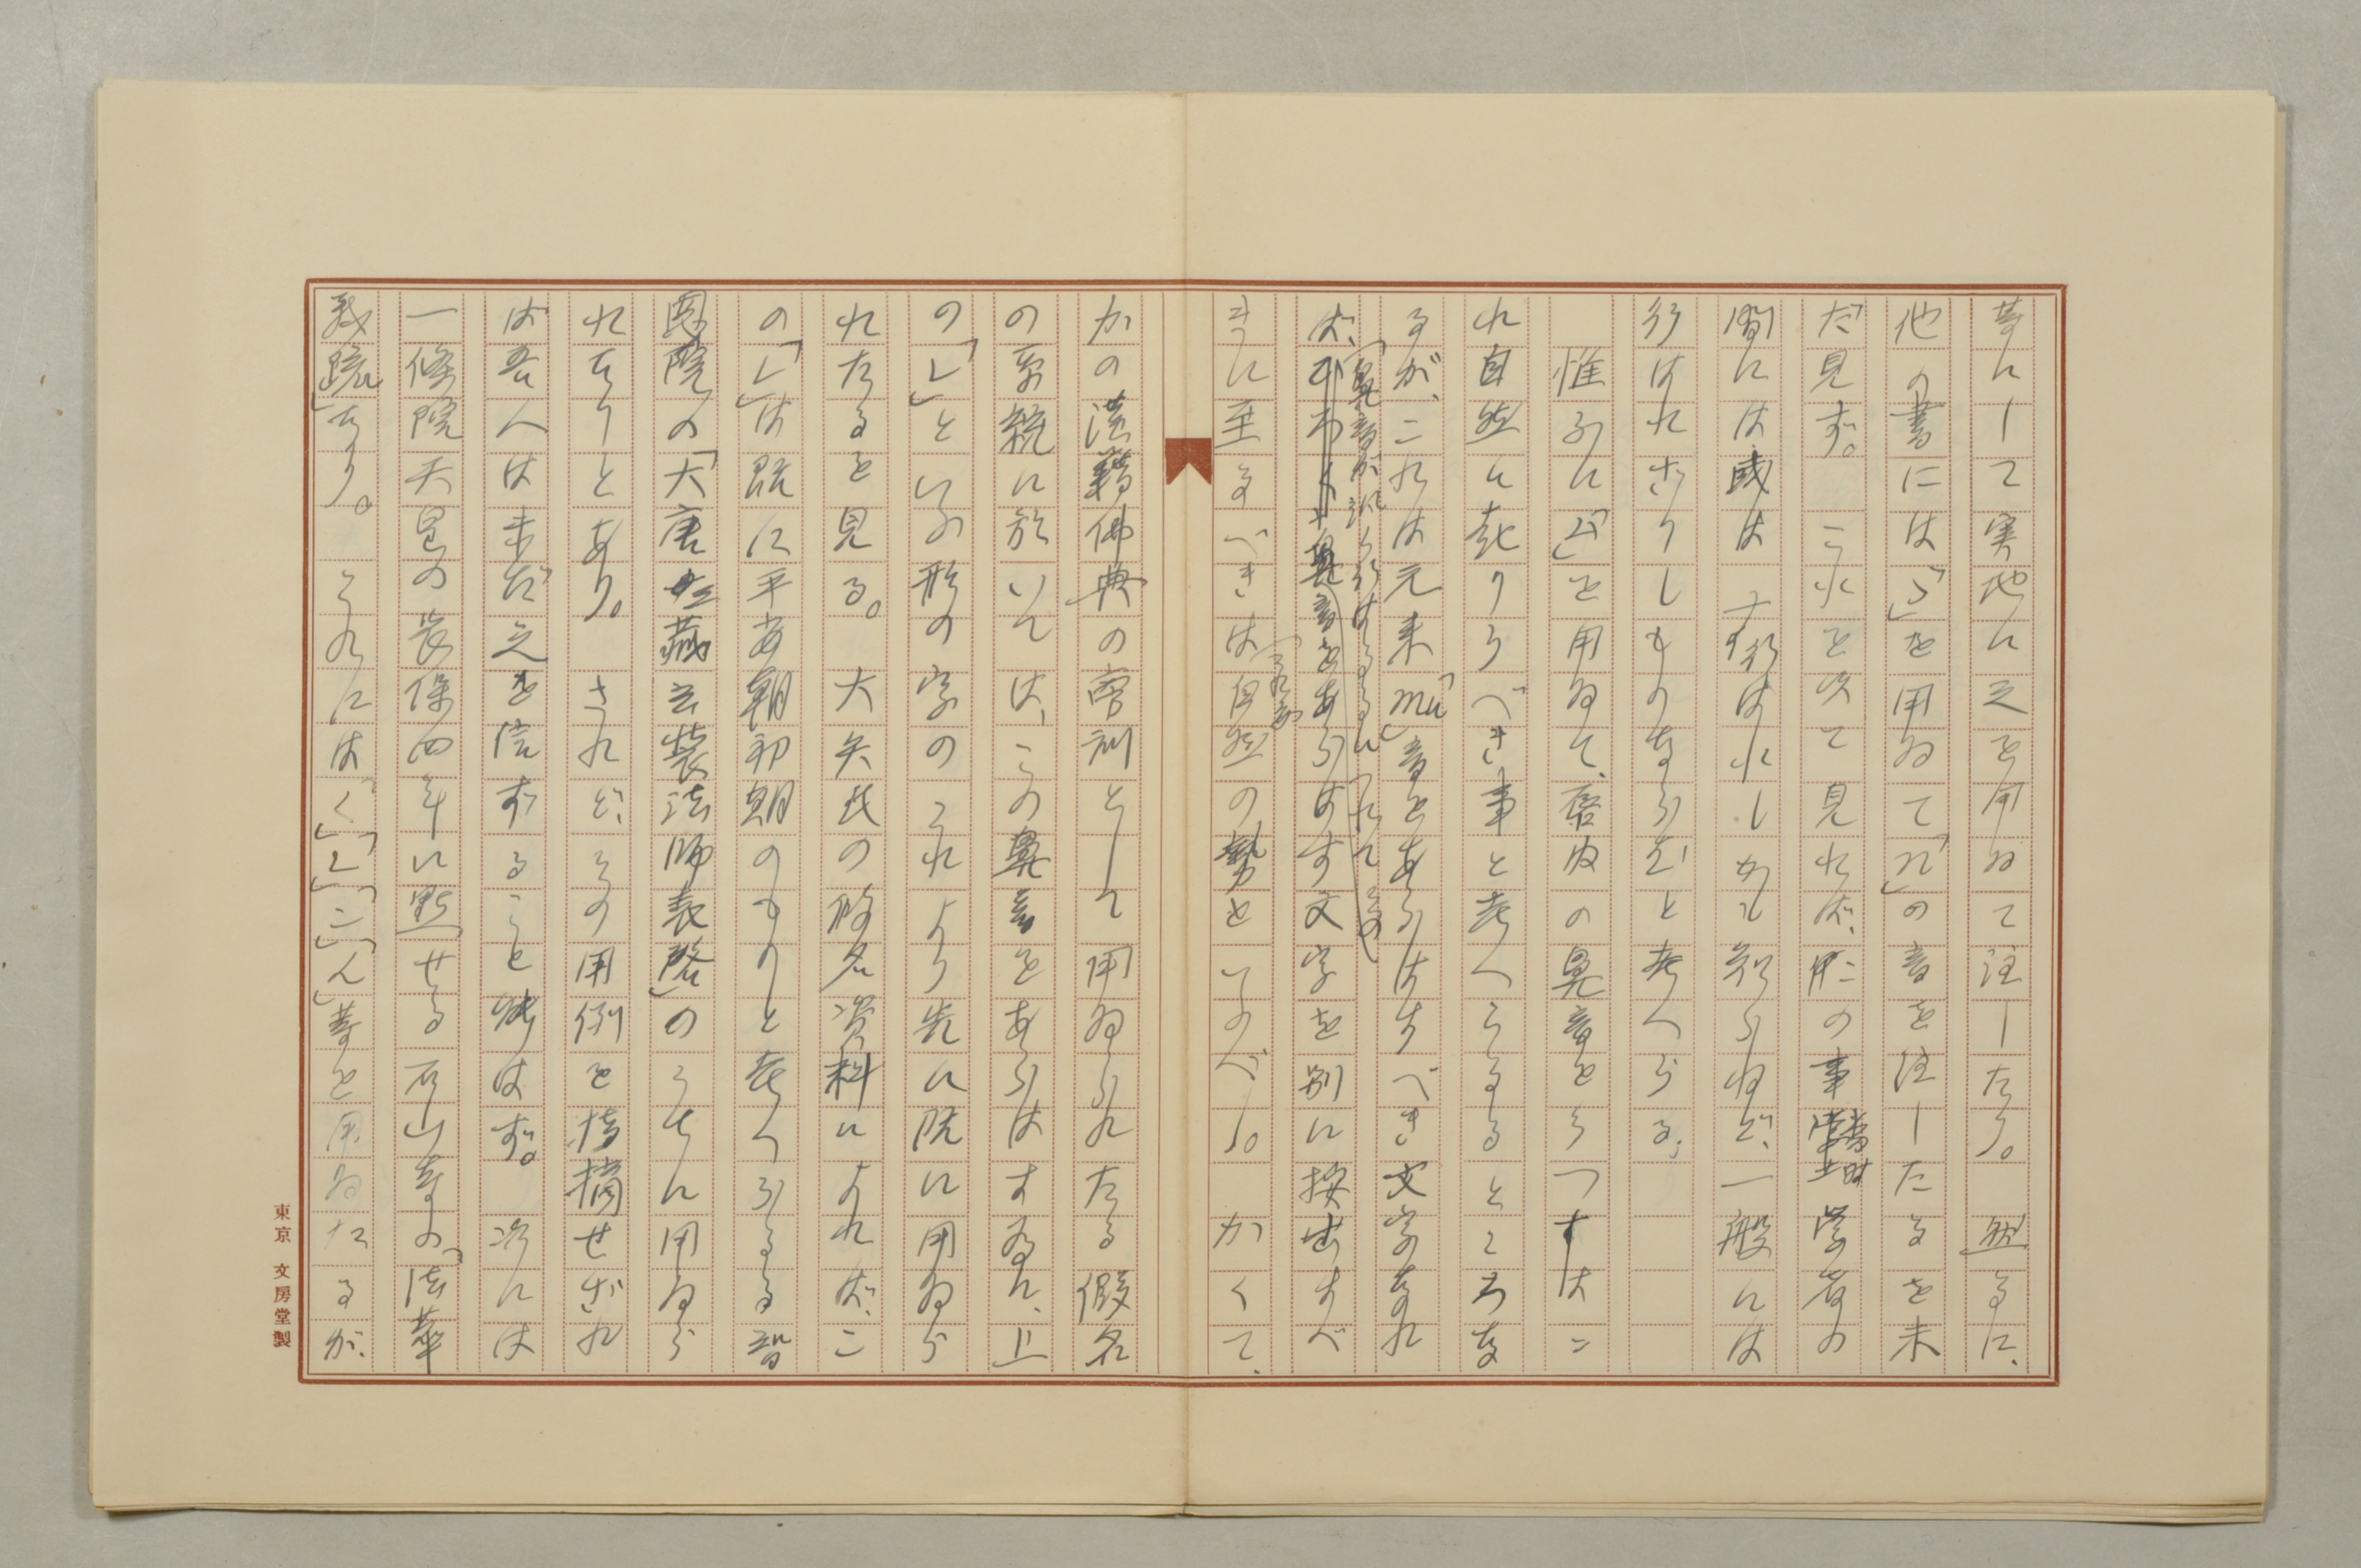 等にして実地に之を用ゐて注したり。然るに、
他の書には「ら」を用ゐて「n」の音を注したるを未
だ見ず。これを以て見れば、この事、当時学者の
間には或は行はれしかも知らねど、一般には
行はれざりしものならむと考へらる。
惟ふに「ム」を用ゐて、唇内の鼻音をうつすはこ
れ自然に起りうべき事と考へらるるところな
るが、これは元来「mu」音をあらはすべき文字なれ
ば、「鼻音が汎く行はるるにつれてその
鼻音をあらはす文字を別に按出すべ
きに至るべきは自然の勢といふべし。かくて、
かの漢籍佛典の音訓として用ゐられたる假名
の系統に於いては、この鼻音をあらはす為に、上
の「レ」といふ形の字のこれより先に既に用ゐら
れたるを見る。大矢氏の假名資料によれば、こ
の「レ」は既に平安朝初期のものと考へらるる智
恩院の「大唐三藏玄奘法師表啓」のうちに用ゐら
れたりとあり。されど、その用例を指摘せざれ
ば吾人は未だ之を信ずること能はず。次には
一條院天皇の長保四年に點せる石山寺の「法華
義疏」なり。これには「く」「レ」「ニ」「ん」等を用ゐたるが、
東京 文房堂製